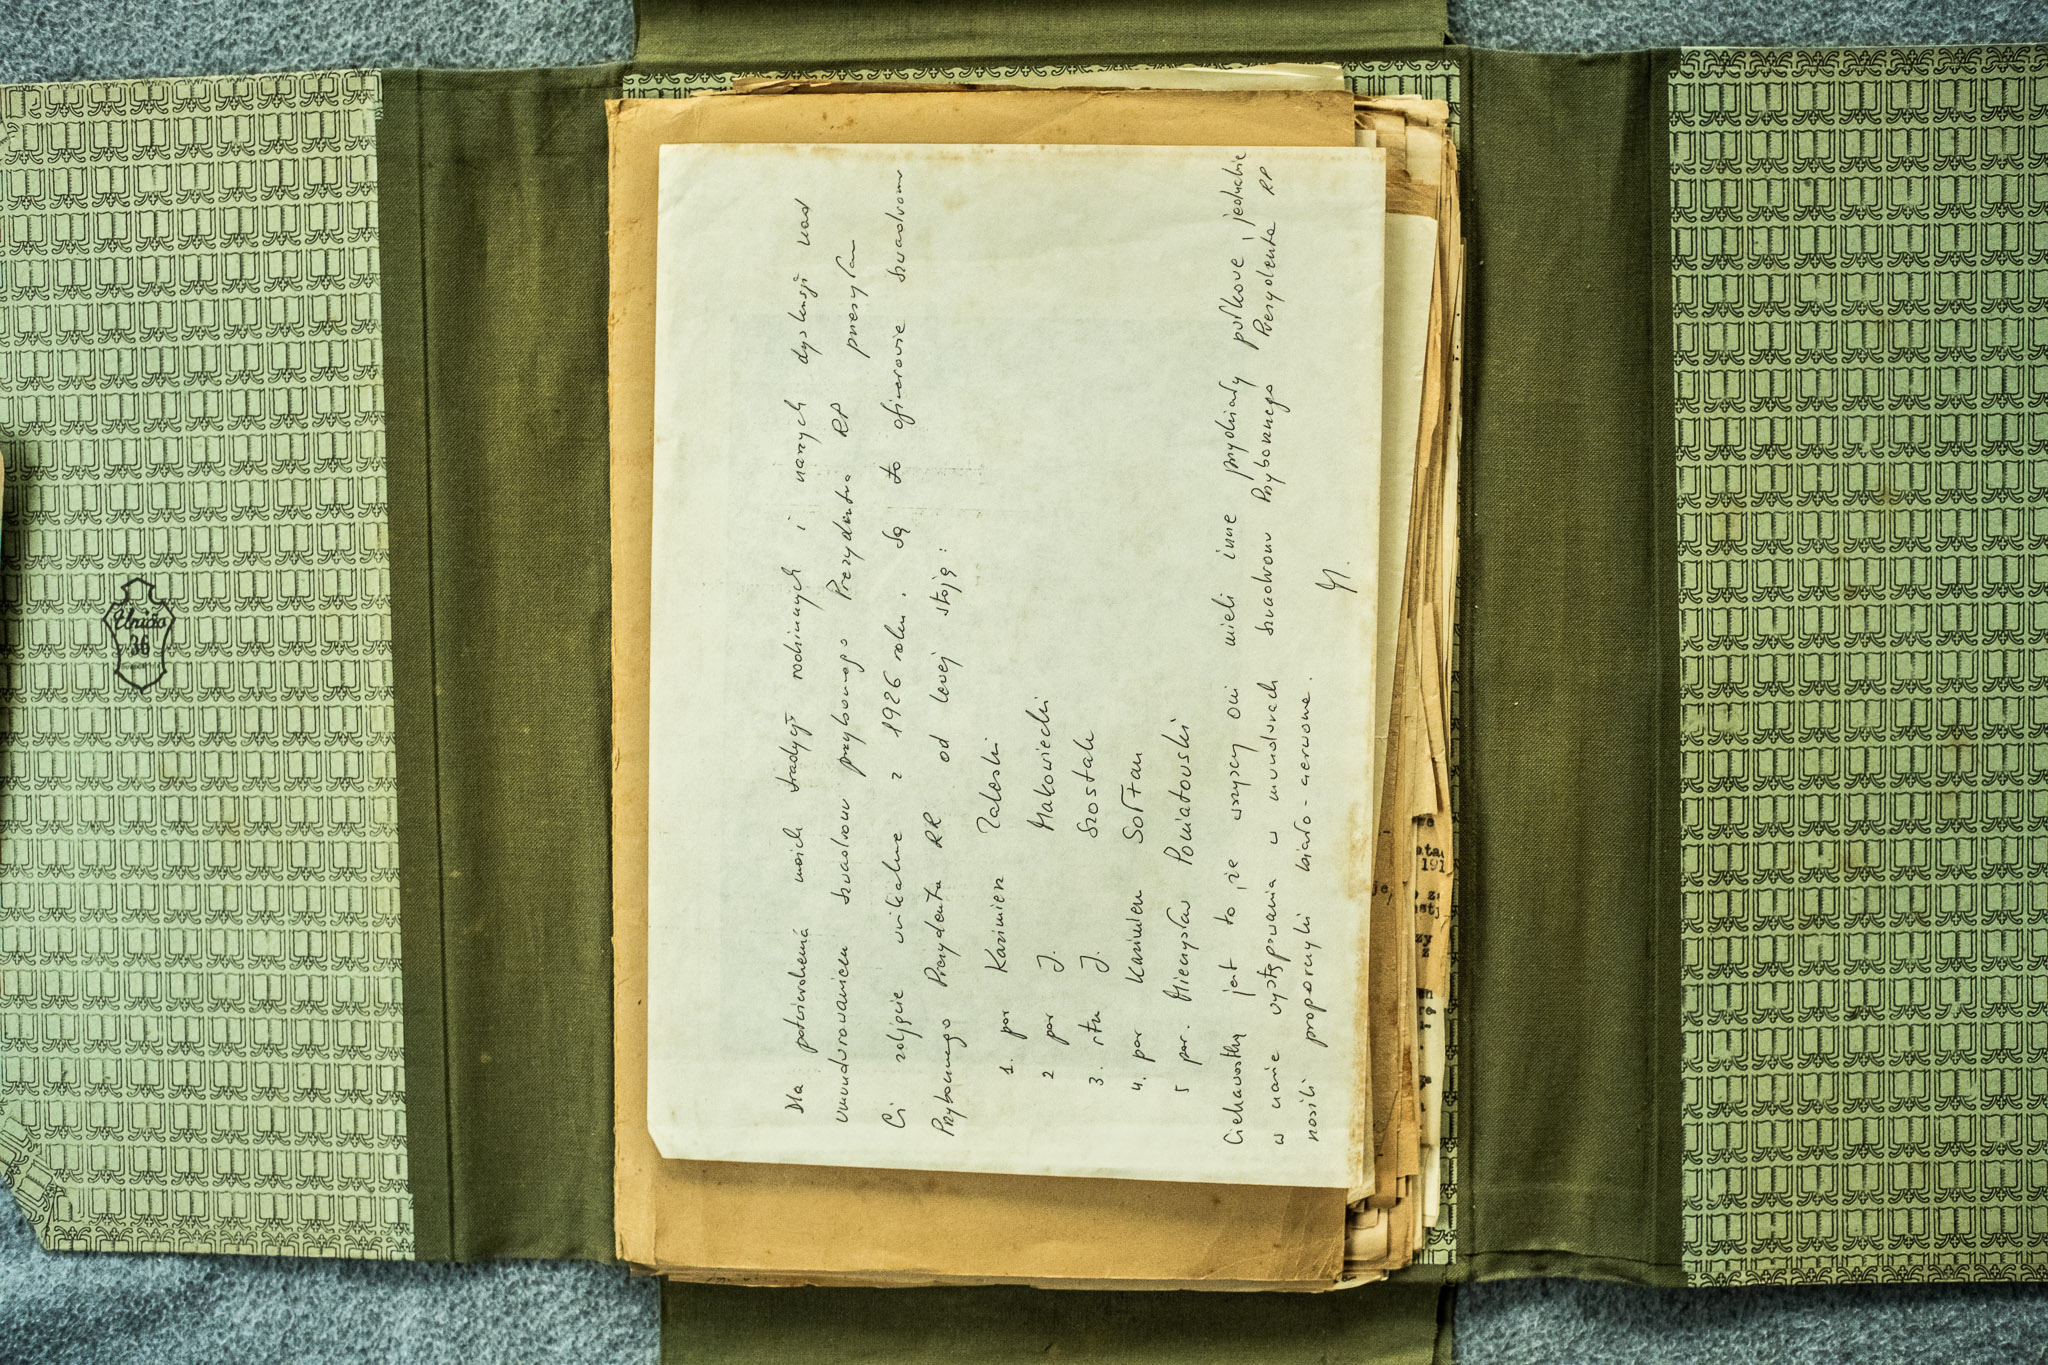 Dla potwierdzenia moich tradycji rodzinnych i naszych dyskusji nad
umundurowaniem szwadronu przybocznego Prezydenta RP przesyłam
Ci zdjęcie unikalne z 1926 roku. Są to oficerowie szwadronu
Przybocznego Prezydenta RP od lewej stoją:
1. por Kazimierz Zaleski
2 por J. Makowiecki
3. rtm J. Szostak
4. por Kazimierz Sołtan
5 por. Mieczysław Poniatowski
Ciekawostką jest to, że wszyscy oni mieli inne przydziały pułkowe i jedynie
w czasie występowania w mundurach szwadronu Przybocznego Prezydenta RP
nosili proporczyki biało-czerwone.
Unia
36